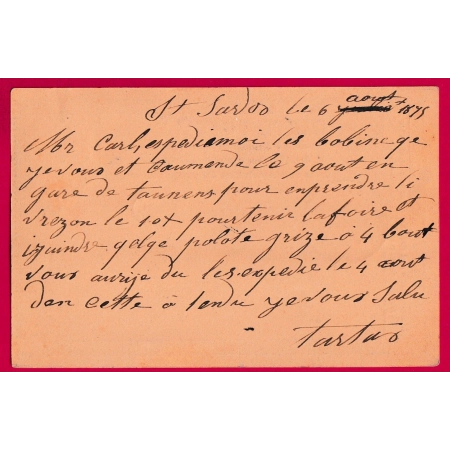 St Sardos le 6 aout 1875
Mr Carl, espediamoi les bobinage
ye vous et coumende le 9 aout en
gare de taunens pour enprendre li
vrezon le 10 pour tenir la foire et
ijouindre qelqe polote grize à 4 bout
vous aurije du les expedie le 4 aout
den cette à tendu ye vous salu
tartas